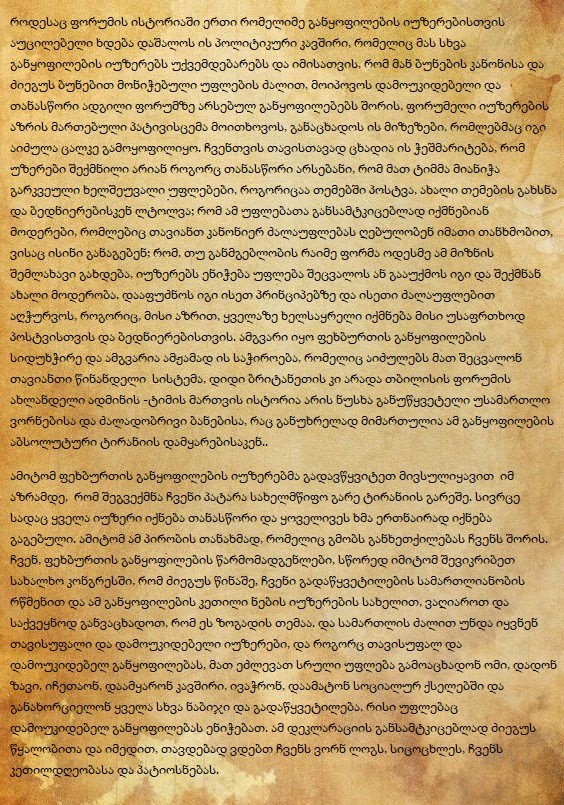 როდესაც ფორუმის ისტორიაში ერთი რომელიმე განყოფილების იუზერებისთვის
აუცილებელი ხდება დაშალოს ის პოლიტიკური კავშირი, რომელიც მას სხვა
განყოფილების იუზერებს უქვემდებარებს და იმისათვის, რომ მან ბუნების კანონისა და
ძიეგუს ბუნებით მონიჭებული უფლების ძალით, მოიპოვოს დამოუკიდებელი და
თანასწორი ადგილი ფორუმზე არსებულ განყოფილებებს შორის, ფორუმელი იუზერების
აზრის მართებული პატივისცემა მოითხოვოს, განაცხადოს ის მიზეზები, რომლებმაც იგი
აიძულა ცალკე გამოყოფილიყო. ჩვენთვის თავისთავად ცხადია ის ჭეშმარიტება, რომ
უზერები შექმნილი არიან როგორც თანასწორი არსებანი, რომ მათ ტიმმა მიანიჭა
გარკვეული ხელშეუვალი უფლებები, როგორიცაა თემებში პოსტვა, ახალი თემების გახსნა
და ბედნიერებისკენ ლტოლვა; რომ ამ უფლებათა განსამტკიცებლად იქმნებიან
მოდერები, რომლებიც თავიანთ კანონიერ ძალაუფლებას ღებულობენ იმათი თანხმობით,
ვისაც ისინი განაგებენ; რომ, თუ განმგებლობის რაიმე ფორმა ოდესმე ამ მიზნის
შემლახავი გახდება, იუზერებს ენიჭება უფლება შეცვალოს ან გააუქმოს იგი და შექმნან
ახალი მოდერობა. დააფუძნოს იგი ისეთ პრინციპებზე და ისეთი ძალაუფლებით
აღჭურვოს, როგორიც, მისი აზრით, ყველაზე ხელსაყრელი იქმნება მისი უსაფრთხოდ
პოსტვისთვის და ბედნიერებისთვის. ამგვარი იყო ფეხბურთის განყოფილების
სიდუხჭირე და ამგვარია ამჟამად ის საჭიროება, რომელიც აიძულებს მათ შეცვალონ
თავიანთი წინანდელი სისტემა, დიდი ბრიტანეთის კი არადა თბილისის ფორუმის
ახლანდელი ადმინის -ტიმის მართვის ისტორია არის ნუსხა განუწყვეტელი უსამართლო
ვორნებისა და ძალადობრივი ბანებისა, რაც განუხრელად მიმართულია ამ განყოფილების
აბსოლუტური ტირანიის დამყარებისაკენ..
ამიტომ ფეხბურთის განყოფილების იუზერებმა გადავწყვიტეთ მივსულიყავით იმ
აზრამდე, რომ შეგვექმნა ჩვენი პატარა სახელმწიფო გარე ტირანიის გარეშე. სივრცე
სადაც ყველა იუზერი იქნება თანასწორი და ყოველივეს ხმა ერთნაირად იქნება
გაგებული. ამიტომ ამ პირობის თანახმად, რომელიც გმობს განხეთქილებას ჩვენს შორის.
ჩვენ, ფეხბურთის განყოფილების წარმომადგენლები, სწორედ იმიტომ შევიკრიბეთ
სახალხო კონგრესში, რომ ძიეგუს წინაშე, ჩვენი გადაწყვეტილების სამართლიანობის
რწმენით და ამ განყოფილების კეთილი ნების იუზერების სახელით, ვაღიაროთ და
საქვეყნოდ განვაცხადოთ, რომ ეს ზოგადის თემაა. და სამართლის ძალით უნდა იყვნენ
თავისუფალი და დამოუკიდებელი იუზერები, და როგორც თავისუფალ და
დამოუკიდებელ განყოფილებას, მათ ეძლევათ სრული უფლება გამოაცხადონ ომი, დადონ
ზავი, იჩეთაონ, დაამყარონ კავშირი, ივაჭრონ, დაამატონ სოციალურ ქსელებში და
განახორციელონ ყველა სხვა ნაბიჯი და გადაწყვეტილება, რისი უფლებაც
დამოუკიდებელ განყოფილებას ენიჭებათ. ამ დეკლარაციის განსამტკიცებლად ძიეგუს
წყალობითა და იმედით, თავდებად ვდებთ ჩვენს ვორნ ლოგს, სიცოცხლეს, ჩვენს
კეთილდღეობასა და პატიოსნებას.